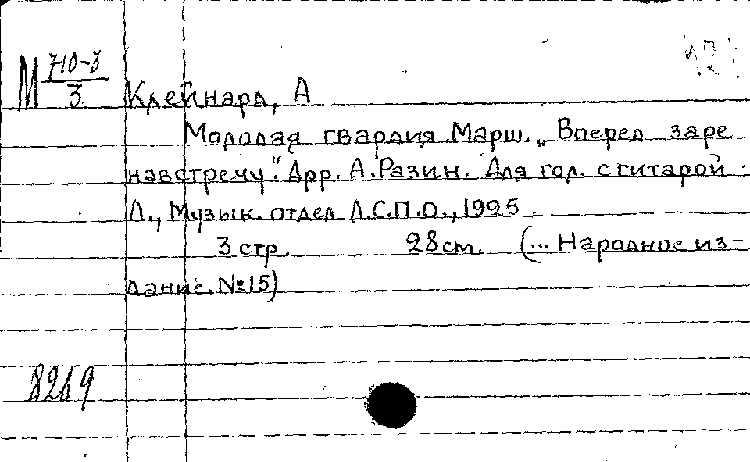 М 710-3
3
Клейнард, А
Молодая гвардия Марш. „Вперед заре
навстречу." Арр. А. Разин. Для гол. с гитарой
Л., Музык. отдел Л.С.П.О., 1925
3 стр. 28 см. (... Народное из-
дание. №15)
8269